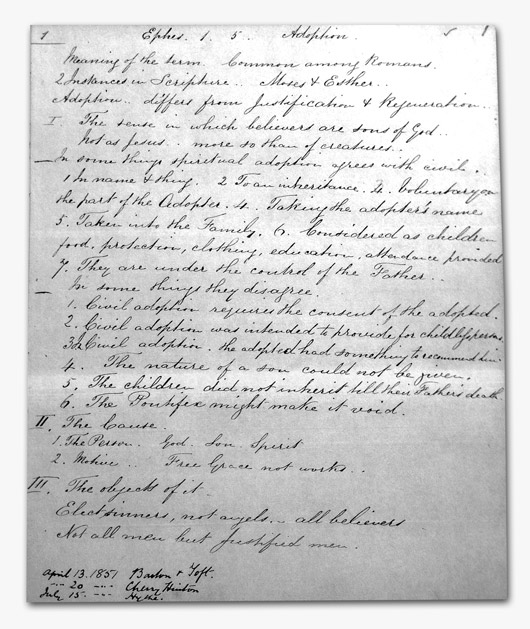 1 Ephes. 1. 5. Adoption. 1
Meaning of the term. Common among Romans.
2 Instances in Scripture.. Moses & Esther..
Adoption.. differs from Justification & Regeneration..
I The sense in which believers are sons of God..
Not as Jesus.. more so than of creatures..
In some things spiritual adoption agrees with civil..
1 In name & thing. 2 To an inheritance. Voluntary on
the part of the Adopter. 4. Taking the adopter's name
5. Taken into the Family. 6. Considered as children
food, protection, clothing, education, attendance provided
7. They are under the control of the Father..
In some things they disagree.
1. Civil adoption requires the consent of the adopted.
2. Civil adoption was intended to provide for childless persons.
3 In Civil adoption, the adopted had something to recommend him
4. The nature of a son could not be given.
5. The children did not inherit till their Father's death
6. The Pontifex might make it void.
II. The Cause.
1. The Person. God. Son. Spirit
2. Motive.. Free Grace not works..
III. The objects of it.
Elect sinners, not angels.. all believers
Not all men but Justified men.
April 13. 1851 Barton & Toft.
" 20 " Cherry Hinton
July 15. " Hythe.